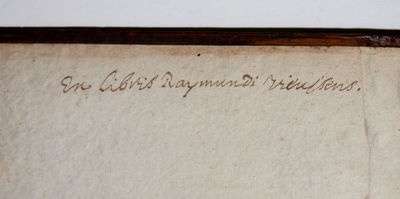 Ex libris Raymundi Vieussens.